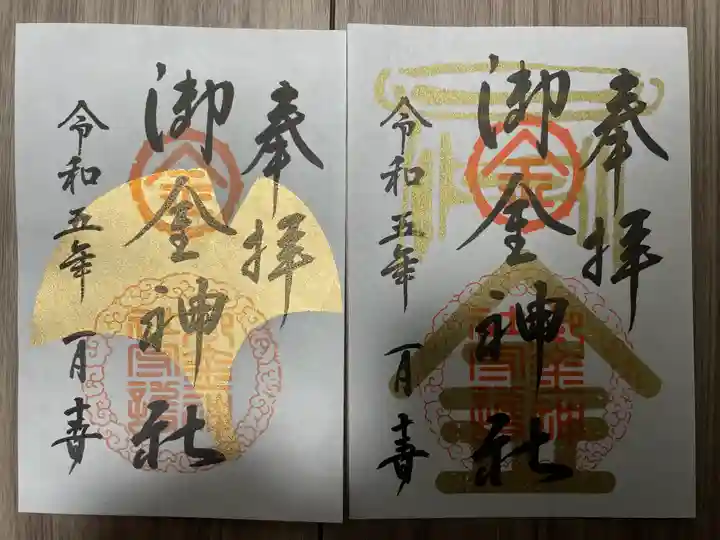 奉拝
御金神社
令和五年 一月吉
奉拝
御金神社
令和五年 一月吉